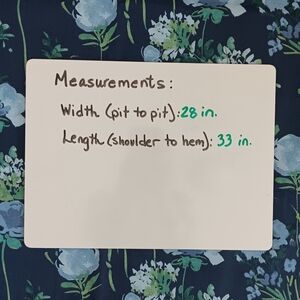 Measurements:
Width (pit to pit): 28 in.
Length (shoulder to hem): 33 in.